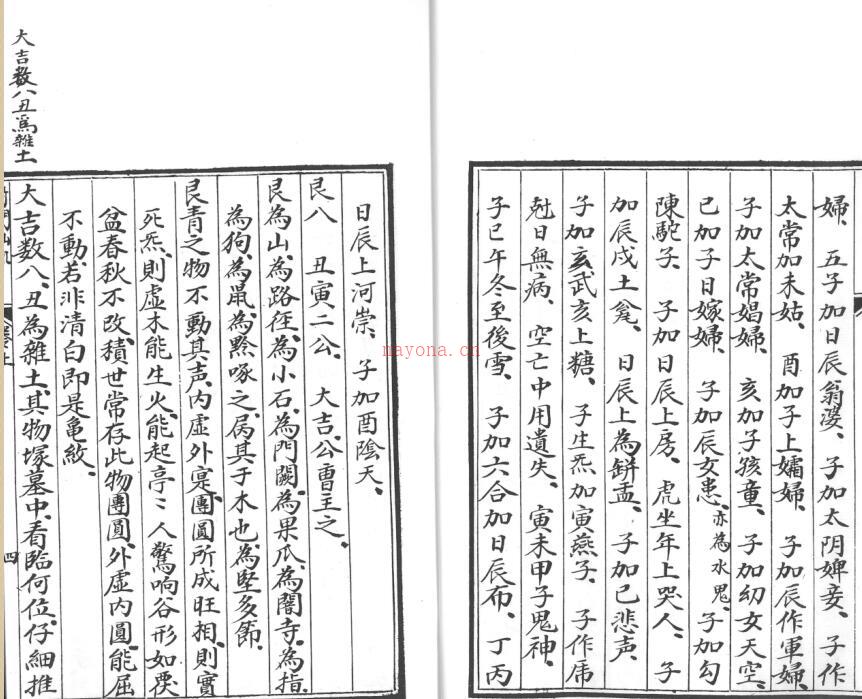 婦、五子加日辰翁婆、子加太阴婢妾、子作
太常加未姑、酉加子上孀婦、子加辰作軍婦、
子加太常娼婦、亥加子孩童、子加幼女天空、
巳加子日嫁婦、子加辰女患、亦為水鬼、子加勾
陳駝子、子加日辰上房、虎坐年上哭人、子
加辰戌土瓮、日辰上為缾盂、子加巳悲声、
子加亥武亥上糖、子生炁加寅燕子、子作席
尅日無病、空亡中用遺失、寅未甲子鬼神、
子巳午冬至後雪、子加六合加日辰布、丁丙
日辰上河崇、子加酉陰天、
艮八 丑寅二公、大吉公曹主之、
艮為山、為路徑、為小石、為門闕、為果瓜、為閽寺、為指、
為狗、為鼠、為黔啄之属、其于木也、為堅多節、
艮青之物不動其声、内虚外寔團圓所成旺相、則實
死炁、則虚木能生火、能起亭〻人驚响谷形如覆
盆春秋不改、積世常存此物團圓、外虚内圓、能屈
不動、若非清白即是亀紋、
大吉数八、丑為雜土、其物塚墓中、看臨何位、仔細推
四
大吉数八丑為雜土
nayona.cn